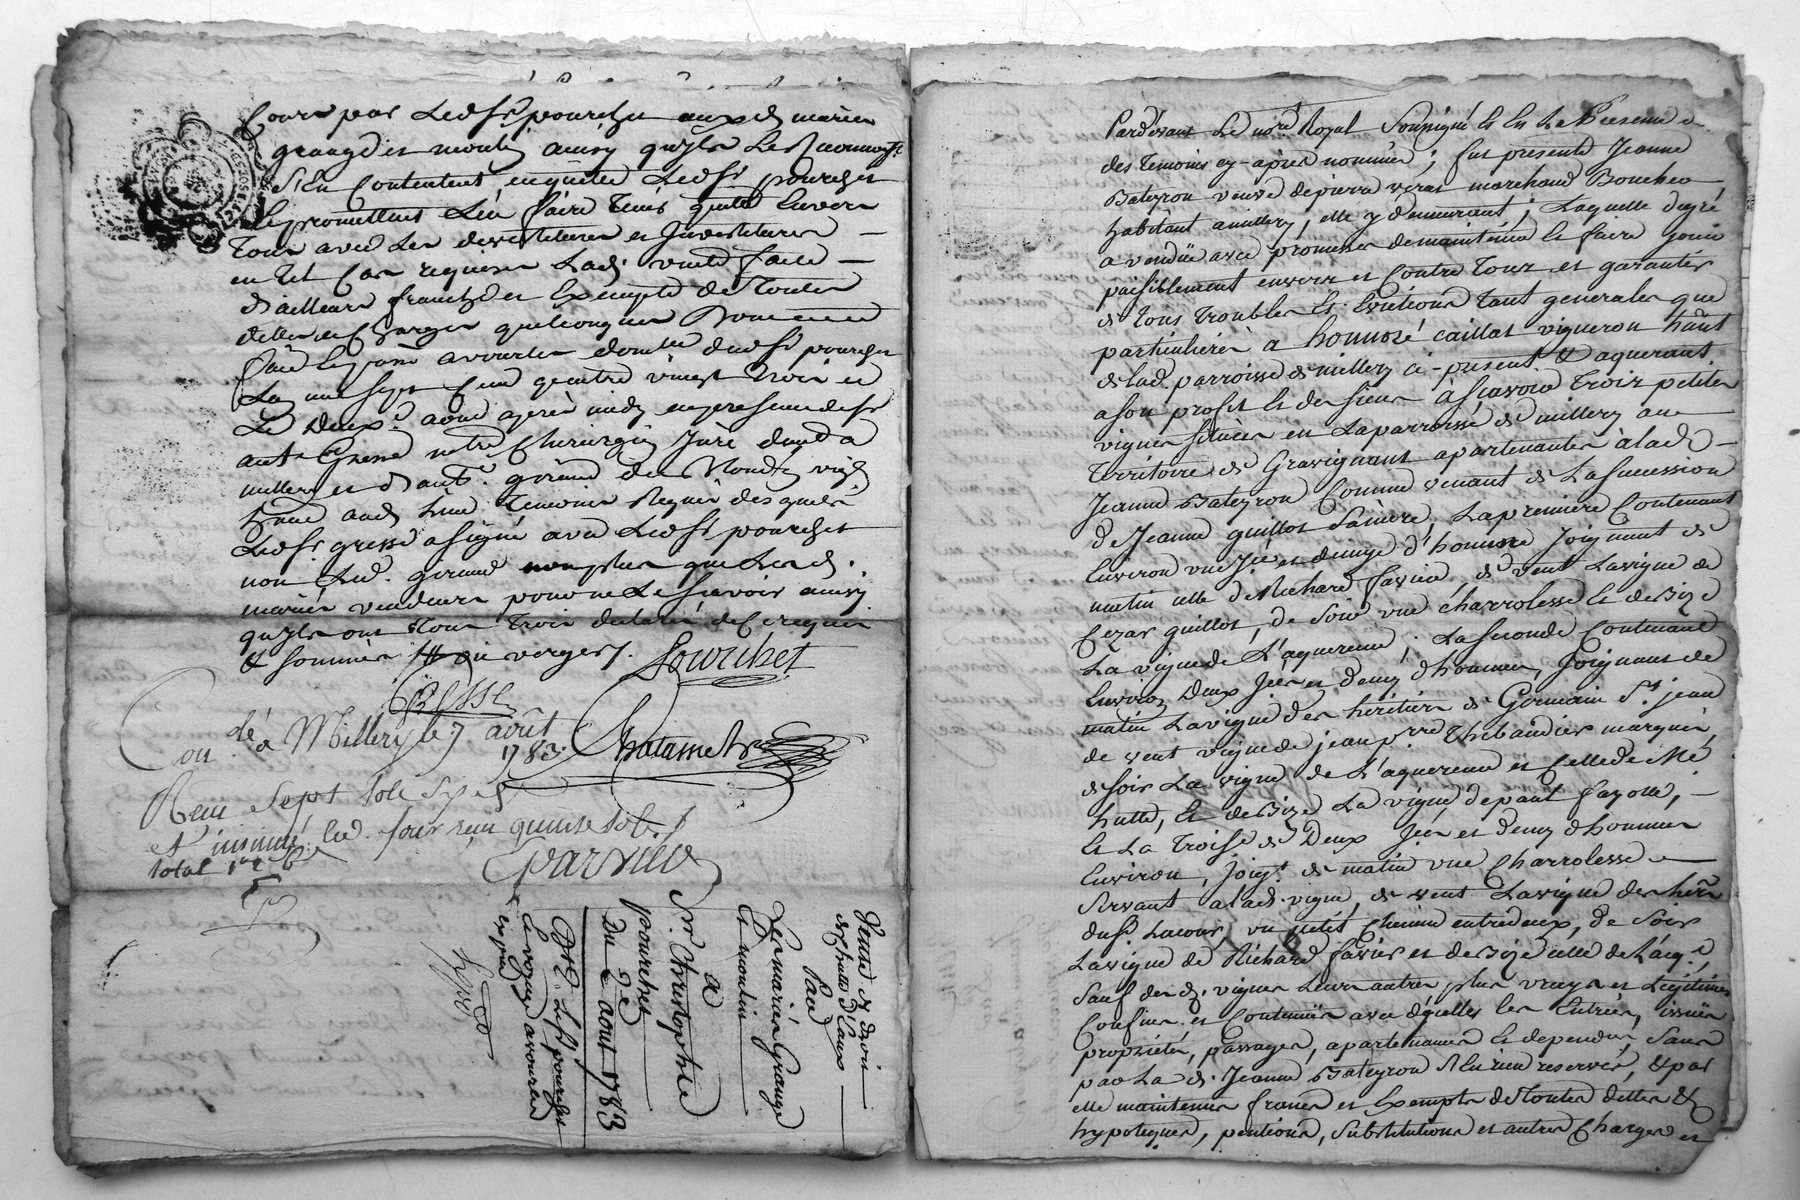 Cours par Ledsr pourchet auxds mariés
grange et moulin ainsy qu'yls Le Reconnoisst
S'En Contentent, en quittent Ledsr pourchet
Et promettent L'en faire tenir quitte Envers
Tous avec Les devestitures et Investitures
en tel Cas requises Lad. vente faite
d'ailleurs franche et Exempte de Toutes
dettes et Charges quelconques
fait et passé a vourles domicile dudsr pourchet
L'an mil sept Cent quatre vingt trois et
Le deux aout après midy en presence de sr
antne Gresse me Chirurgien Juré dud
millery et d'antne giraud des Rondes
Temoins Requis desquels
Ledsr gresse a signé avec Ledsr pourchet
non Led. giraud non plus que Lesd.
mariés vendeurs pour ne Le sçavoir ainsy
qu'yls ont Tous Trois declaré de Ce requis
& sommés
Pourchet
Gresse
Con lé a Millery le 7 août
1783
Chatanet
Reçu sept sols six ds
et insinué led. jour reçu quinze sols
total
Vente de droit
de chute d'Eaux
Par
Les mariés Grange
et moulin
a
Sr. Christophle
pourchet
Du 2 aout 1783
Pardevant Le nore Royal Soussigné Et En La Presence
des Temoins cy-après nommés; fut presente Jeanne
Bateyron veuve de pierre veras marchand Boucher
habitant a millery, elle y demeurant; Laquelle degré
a vendüe avec promesse de maintenir Et faire jouir
paisiblement envers et Contre tous et garantir
de tous troubles Et Evictions tant generales que
particulieres a honnoré caillat vigneron habnt
de lad. parroisse de millery ci-present & aquerant
a son profit Et des siens à sçavoir trois petites
vignes situées en La parroisse de millery au
Territoire de Gravignant apartenantes à lad.
Jeanne Bateyron Comme venant de La succession
de Jeanne guillot sa mere, La premiere Contenant
Environ une Jée et demye d'homme Joignant de
matin celle de Richard favier, de vent La vigne de
Cezar guillot, de soir une charrolesse Et de Bize
La vigne de L'aquereur; La seconde Contenant
Environ Deux Jées et demy d'hommes, Joignant de
matin La vigne des héritiers de Germain St. jean
de vent vigne de jean pierre Thibaudier marqués,
de soir La vigne de L'aquereur et Celle de Mé
hutte, Et de Bize La vigne de paul fayolle,
Et La Troise de Deux Jées et demy d'hommes
Environ, joigt. de matin une Charrolesse
Servant à lad. vigne, de vent La vigne des hers
dusr. Lacour, un petit Chemin entredeux, de Soir
La vigne de Richard favier et de Bize celle de L'aqr,
Sauf desd. vignes Leurs autres plus vrays et Légitimes
Confins et Contenües avec d'icelles Les Entrées, issües
proprietés, passages, apartenances Et dependces, Sans
par La d. Jeanne Bateyron s'En rien reserver, & par
elle maintenues franches et Exemptes de Toutes dettes &
hypoteques, pentions, Substitutions et autres Charges et